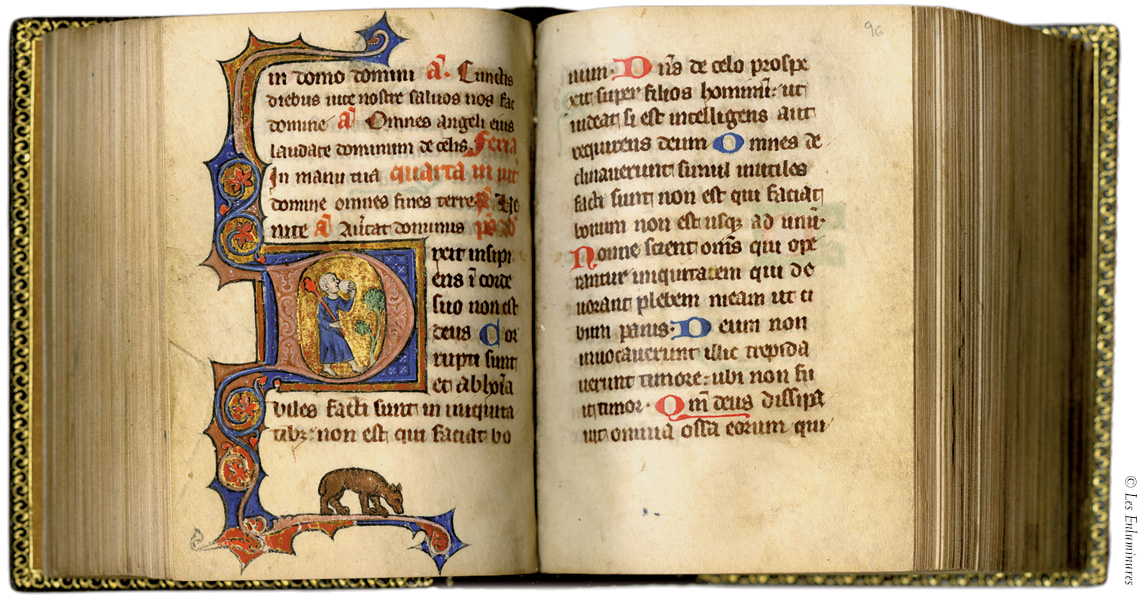 in domo domini a. Cunctis
diebus uite nostre saluos nos fac
domine a Omnes angeli eius
laudate dominum de celis. Feria
In manu tua quarta in uit
domine omnes fines terre ps Ve
nite a Auertat dominus ps
Dixit insipi
ens i corde
suo non est
deus Cor
rupti sunt
et abhoia
biles facti sunt in iniquita
tibz: non est qui faciat bo
96
num. Dns de celo prospe
xit super filios hominu: ut
uideat si est intelligens aut
requirens deum Omnes de
clinauerunt simul inutiles
facti sunt non est qui faciat
bonum non est usqz ad unu.
Nonne scient oms qui ope
rantur iniquitatem qui de
uorant plebem meam ut ci
bum panis: Deum non
inuocauerunt illic trepida
uerunt timore: ubi non fu
it timor. Qm deus dissipa
uit omnia ossa eorum qui
© Les Enluminures